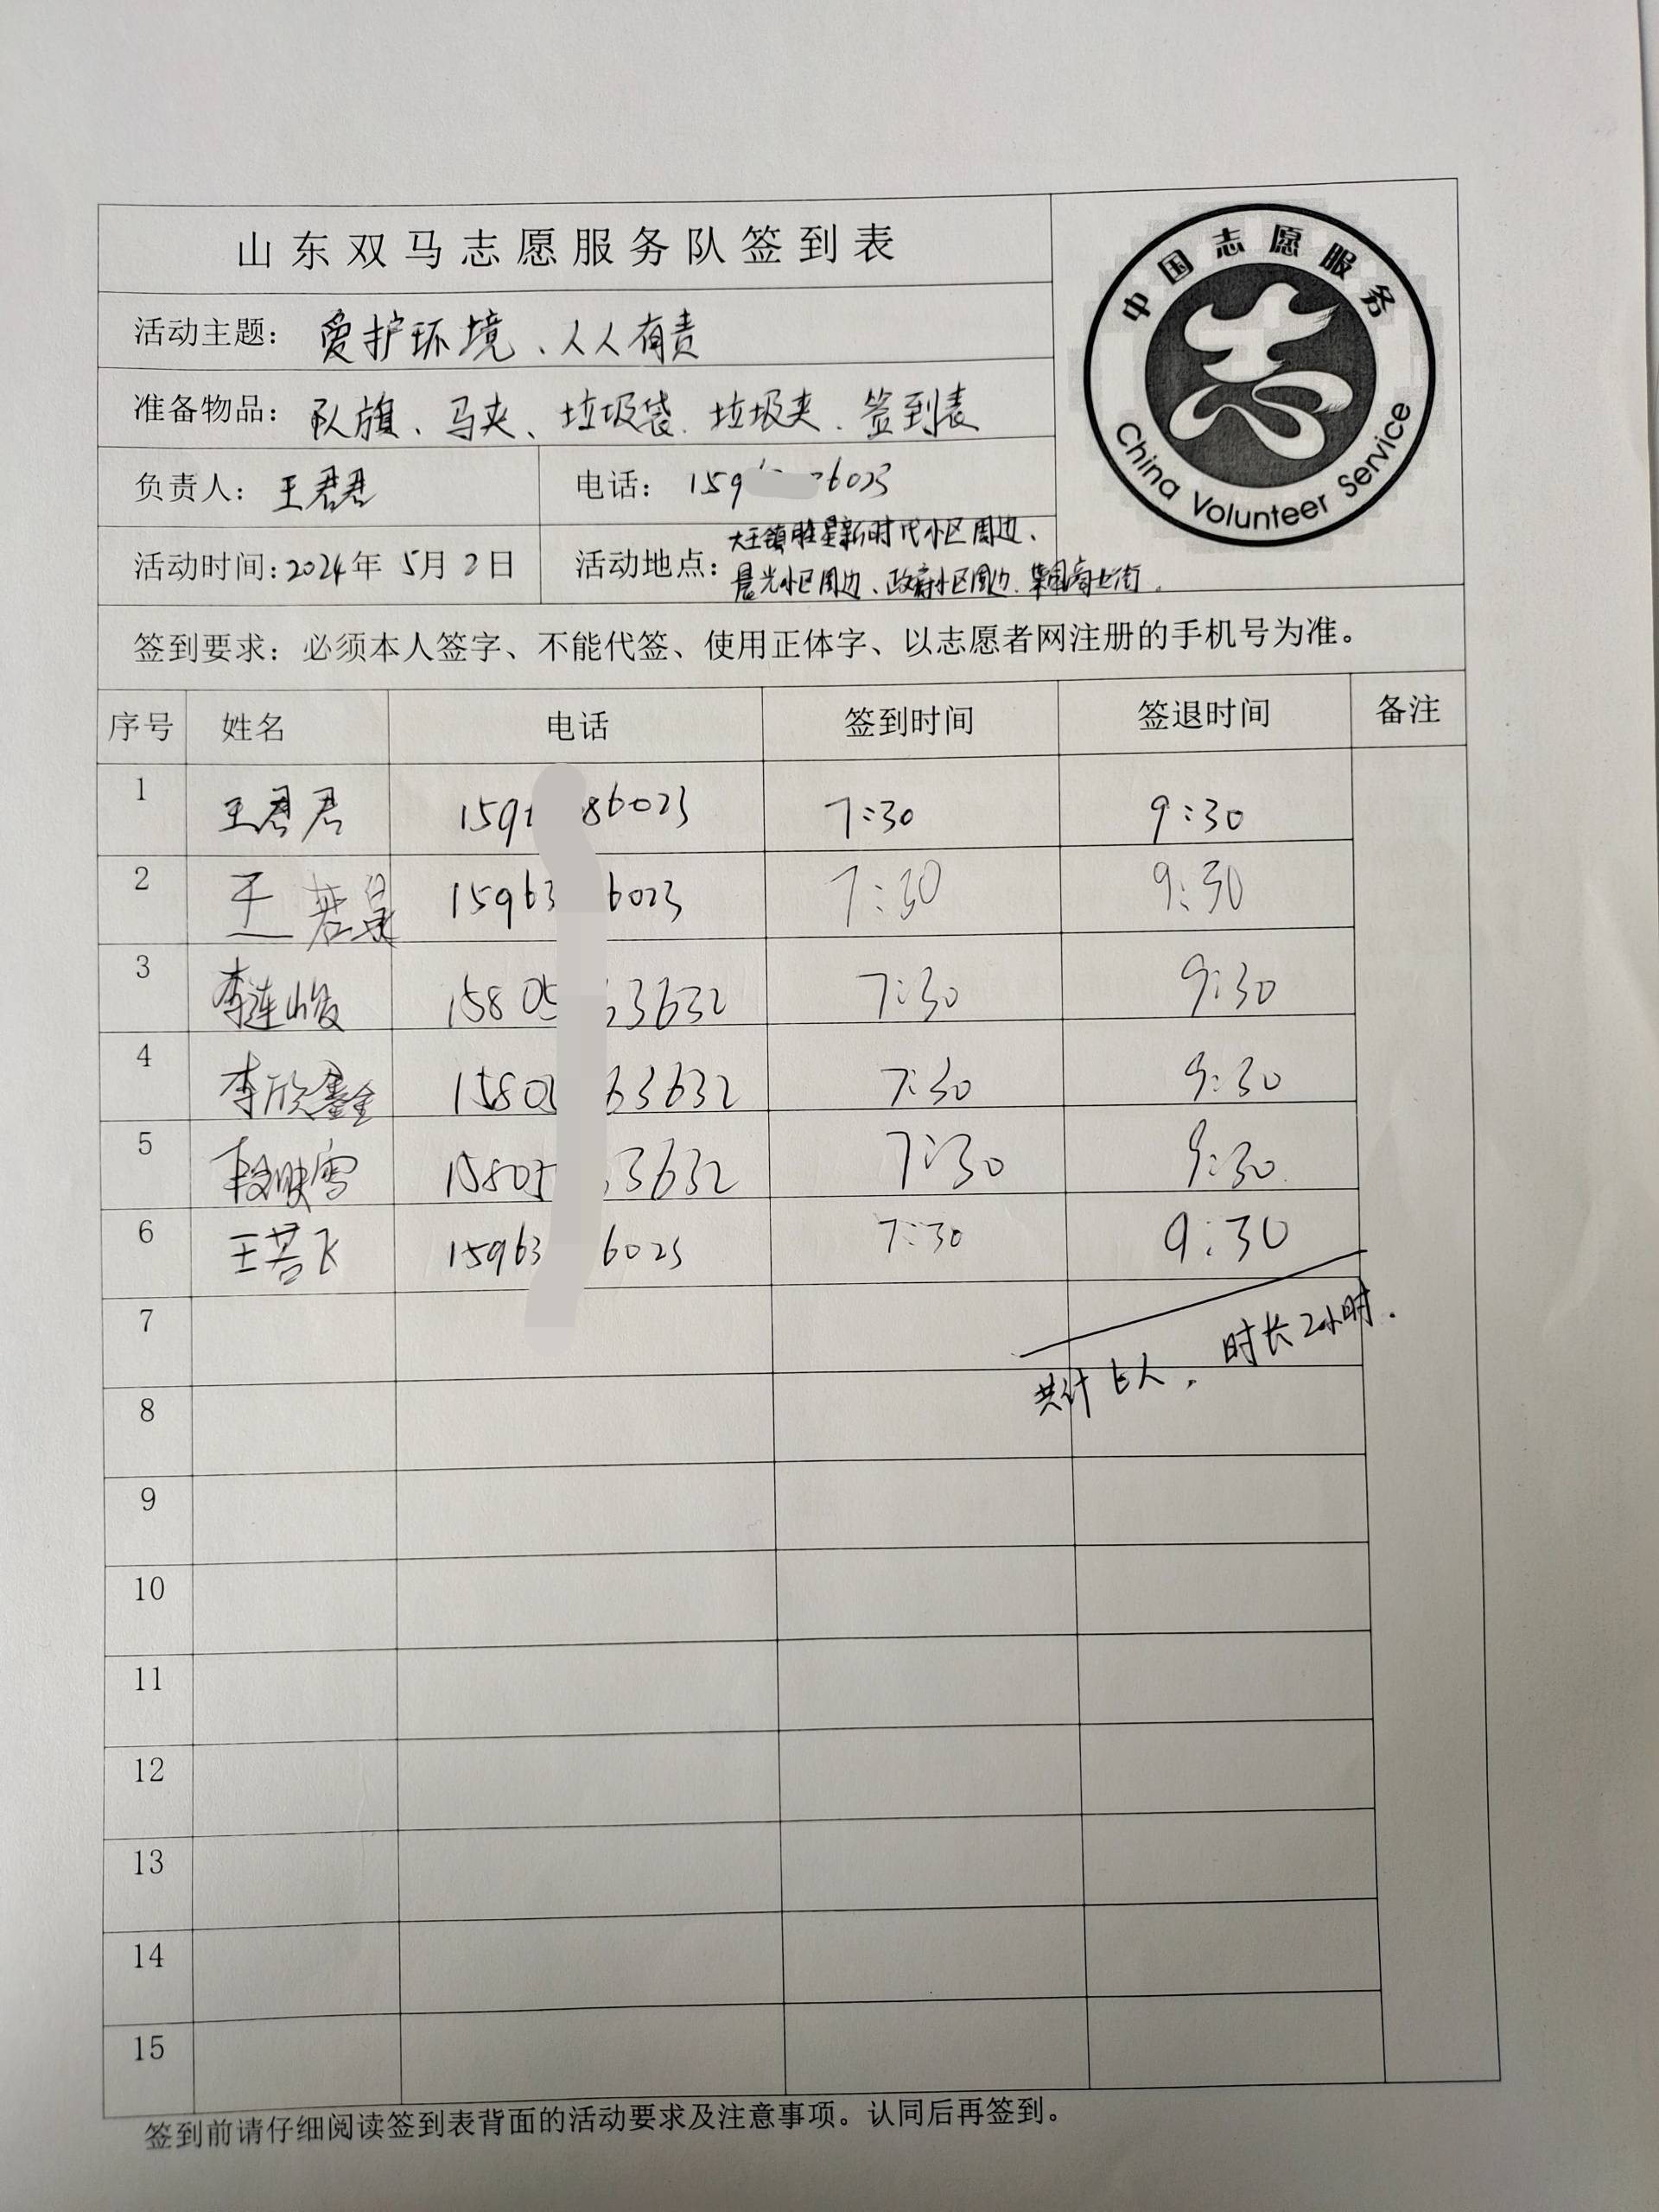 山东双马志愿服务队签到表
中国志愿服务
China Volunteer Service
活动主题: 爱护环境、人人有责
准备物品: 队旗、马夹、垃圾袋、垃圾夹、签到表
负责人: 王君君 电话: 159 6023
活动时间:2024年 5月 2日 活动地点: 大王镇胜星新时代小区周边、
晨光小区周边、政府小区周边、集团商业街.
签到要求: 必须本人签字、不能代签、使用正体字、以志愿者网注册的手机号为准。
序号 姓名 电话 签到时间 签退时间 备注
1 王君君 159 86023 7:30 9:30
2 王 15963 6023 7:30 9:30
3 李连峻 15805 3632 7:30 9:30
4 李欣鑫 1580 63632 7:30 9:30
5 段映雪 15805 3632 7:30 9:30
6 王若飞 15963 6023 7:30 9:30
7
共计七人, 时长2小时.
8
9
10
11
12
13
14
15
签到前请仔细阅读签到表背面的活动要求及注意事项。认同后再签到。